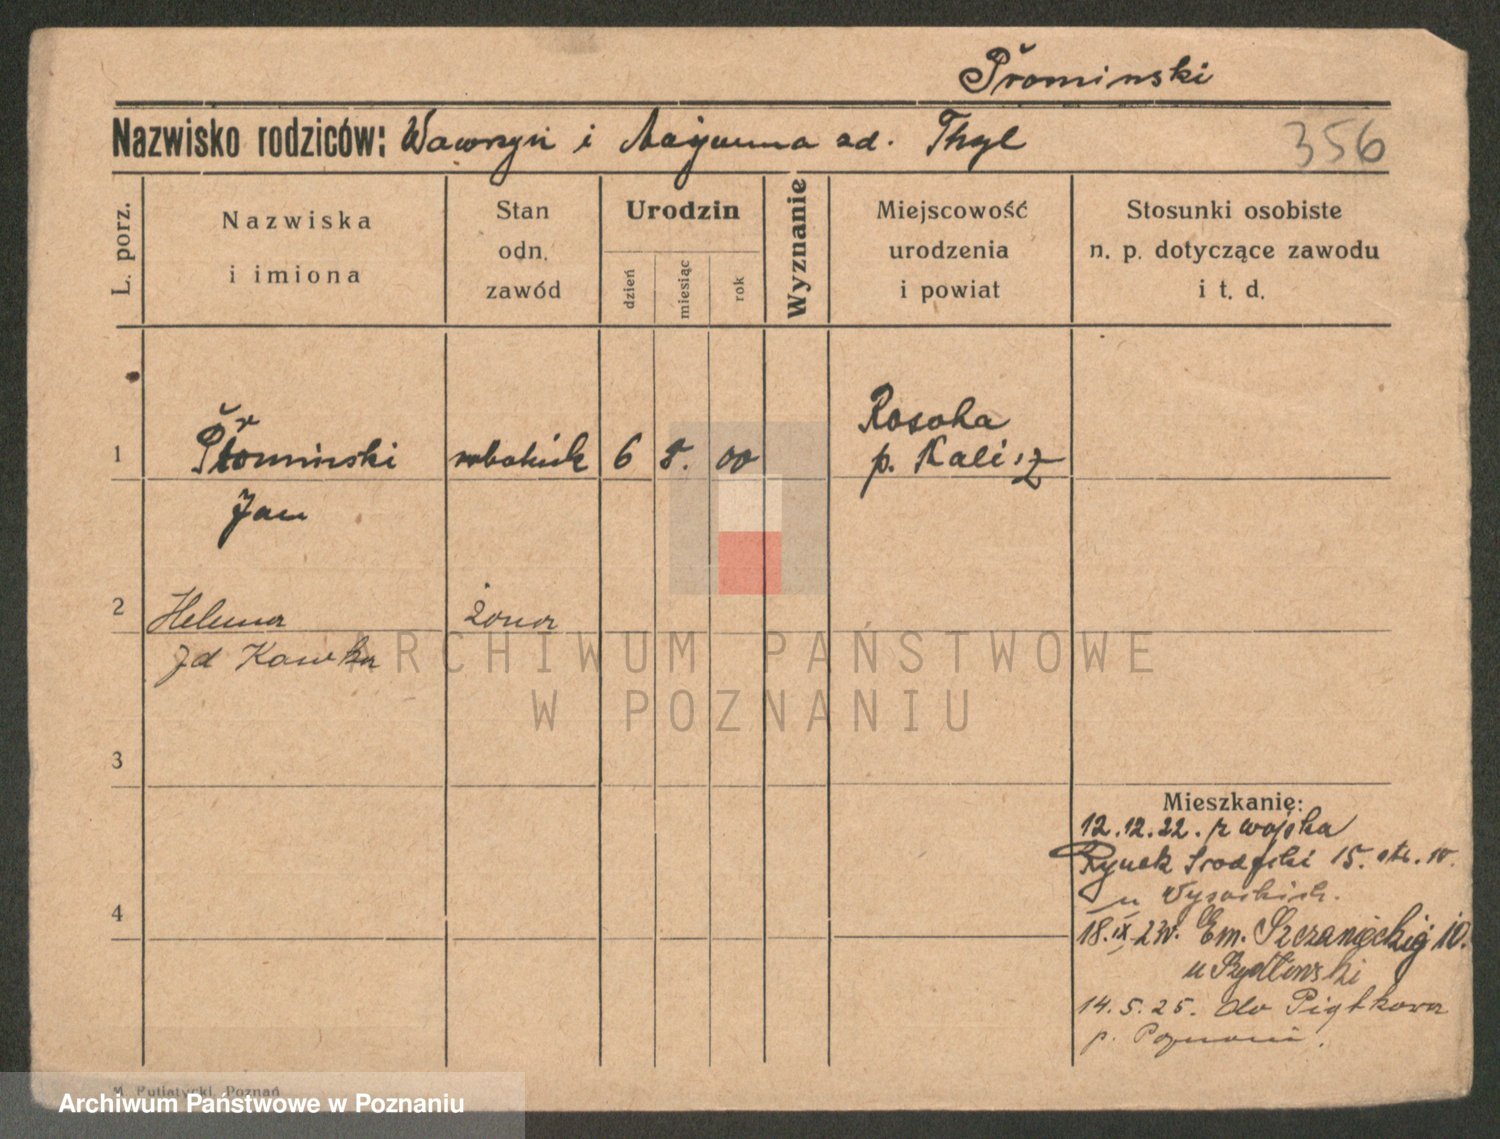 Prominski
Nazwisko rodziców: Wawrzyn i Maryanna zd. Thyl
356
L. porz.
Nazwiska
i imiona
Stan
odn.
zawód
Urodzin
dzień
miesiąc
rok
Wyznanie
Miejscowość
urodzenia
i powiat
Stosunki osobiste
n. p. dotyczące zawodu
i t. d.
1
Prominski
Jan
robotnik
6
8.
00
Rosoha
p. Kalisz
2
Helena
zd Kawka
żona
3
4
Mieszkanie:
12.12.22. z wojska
Rynek Srodecki 15. 
u Wysockich.
18.IX. Em. Szczanieckiej 10.
u
14.5.25. do Piątkowa
p. Poznani.
M. Putiatycki, Poznań
ARCHIWUM PAŃSTWOWE
W POZNANIU
Archiwum Państwowe w Poznaniu